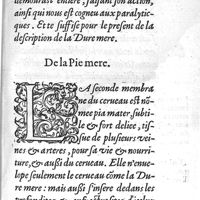 demourast entiere, faisant son action,
ainsi qui nous est cogneu aux paralytic-
ques. Et te suffise pour le present de la
description de la Dure mere.
De la Pie mere.
LA seconde membra
ne du cerueau est nõ-
mee pia mater, subti-
le & fort delice, tiss-
sue de plusieurs vei-
nes & arteres, pour sa vie & nourri-
ture, & aussi du cerueau. Elle n'enue-
lope seulement le cerueau cõme la Du-
re mere: mais aussi s'insere dedans les